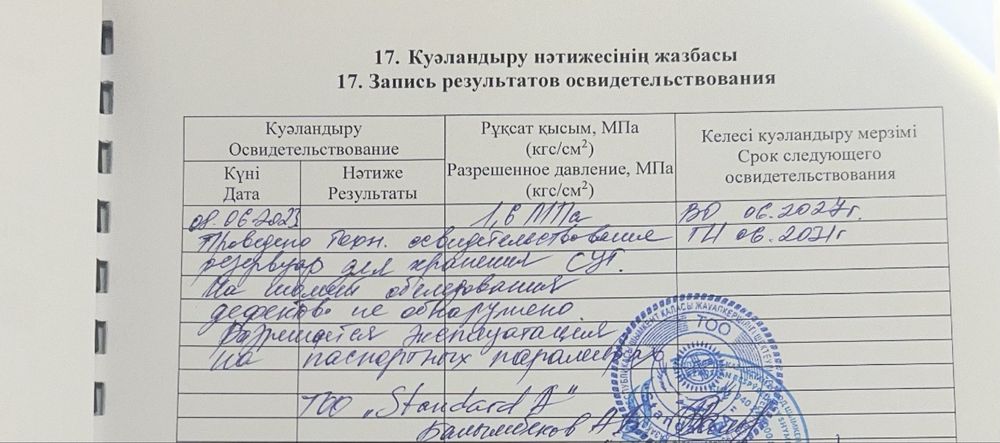 17. Куәландыру нәтижесінің жазбасы
17. Запись результатов освидетельствования
Куәландыру
Освидетельствование
Күні
Дата
Нәтиже
Результаты
Рұқсат қысым, МПа
(кгс/см²)
Разрешенное давление, МПа
(кгс/см²)
Келесі куәландыру мерзімі
Срок следующего
освидетельствования
08.06.2023 1,6 МПа ВО 06.2027г.
Проведено техн. освидетельствования ГИ 06.2031г
резервуар для хранения СУГ.
На обследования
дефектов не обнаружено.
Разрешается эксплуатация
на паспортных параметрах
ТОО „Standard А"
ТОО